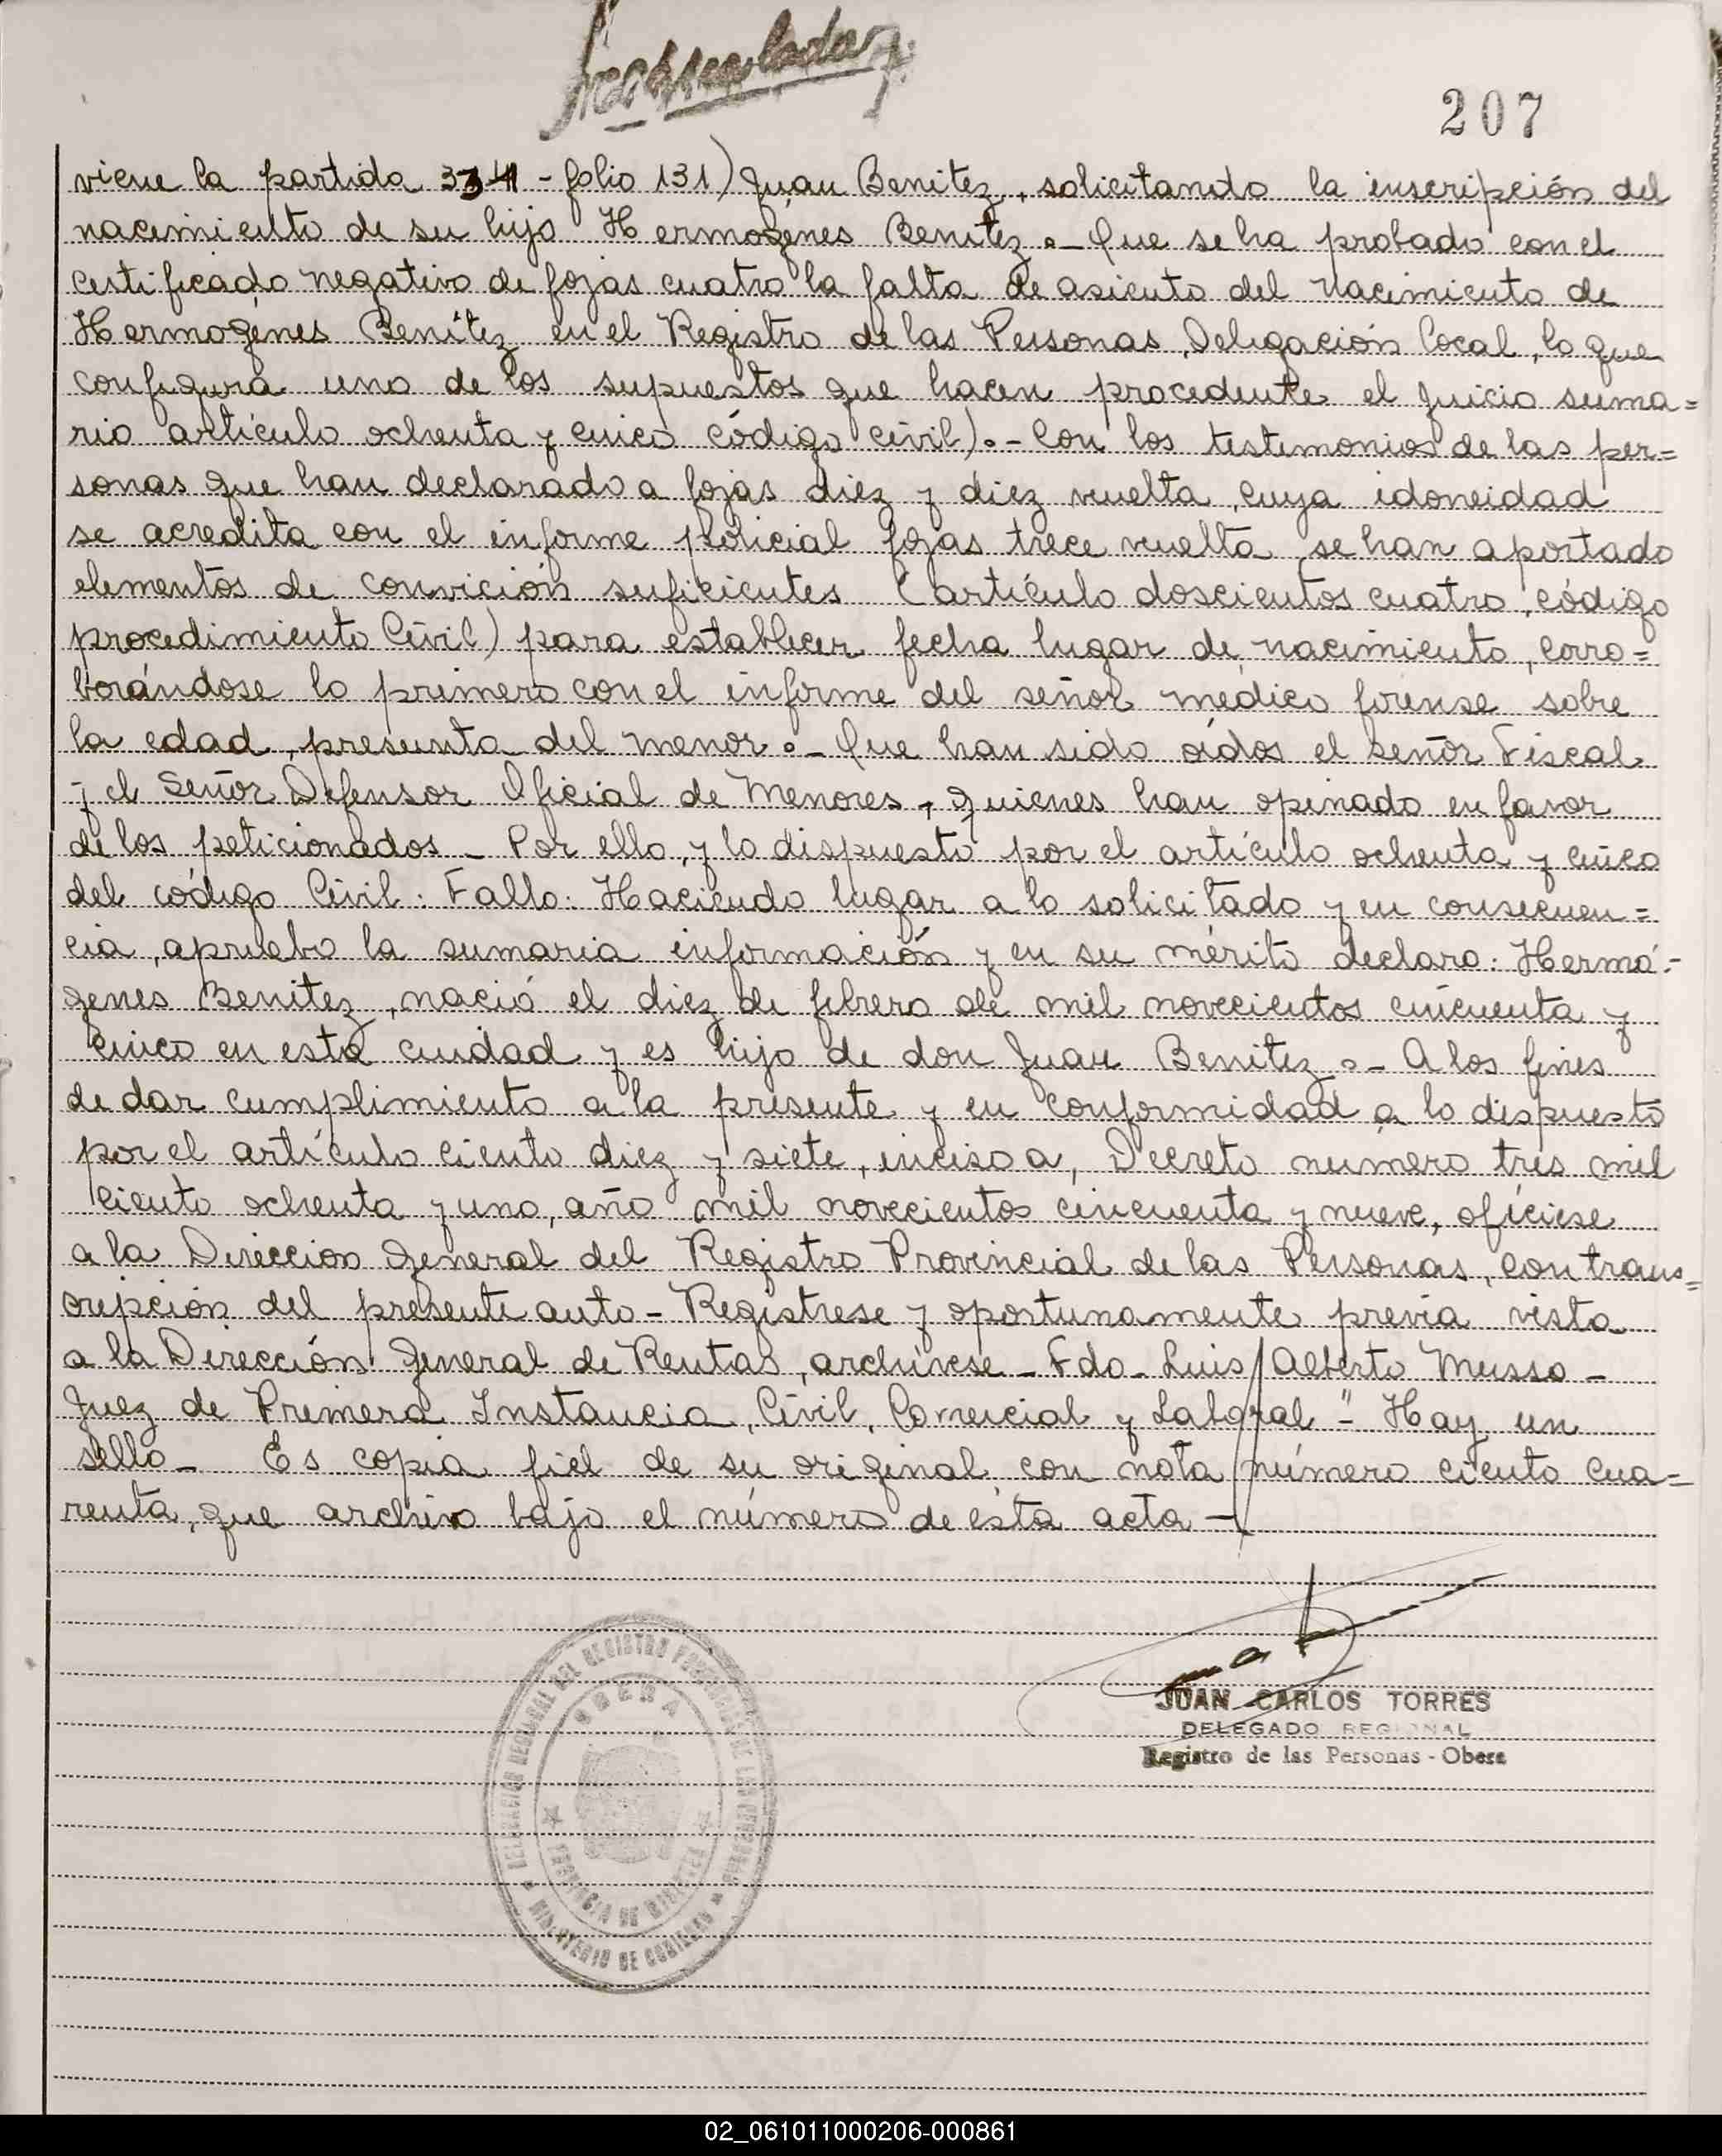 207
viene la partida 334 - folio 131) Juan Benitez, solicitando la inscripción del
nacimiento de su hijo Hermogenes Benitez.- Que se ha probado con el
certificado negativo de fojas cuatro la falta de asiento del nacimiento de
Hermogenes Benítez en el Registro de las Personas, Delegación Local, lo que
configura uno de los supuestos que hacen procedente el juicio suma=
rio artículo ochenta y cinco código civil).- Con los testimonios de las per=
sonas que han declarado a fojas diez y diez vuelta, cuya idoneidad
se acredita con el informe policial fojas trece vuelta, se han aportado
elementos de convición suficientes (artículo doscientos cuatro, código
procedimiento Civil) para establecer fecha lugar de nacimiento, corro=
borándose lo primero con el informe del señor médico forense sobre
la edad, presunta del menor.- Que han sido oídos el señor Fiscal
y el Señor Defensor Oficial de Menores, quienes han opinado en favor
de los peticionados - Por ello, y lo dispuesto por el artículo ochenta y cinco
del código Civil: Fallo: Haciendo lugar a lo solicitado y en consecuen=
cia, apruebo la sumaria información y en su mérito declaro: Hermó-
genes Benitez, nació el diez de febrero de mil novecientos cincuenta y
cinco en esta ciudad y es hijo de don Juan Benitez.- A los fines
de dar cumplimiento a la presente y en conformidad a lo dispuesto
por el artículo ciento diez y siete, inciso a, Decreto número tres mil
ciento ochenta y uno, año mil novecientos cincuenta y nueve, ofíciese
a la Direccion General del Registro Provincial de las Personas, con trans=
cripción del presente auto - Regístrese y oportunamente previa vista
a la Dirección General de Rentas, archívese - Fdo - Luis Alberto Musso -
Juez de Primera Instancia, Civil, Comercial y Laboral "- Hay un
sello - Es copia fiel de su original con nota número ciento cua=
renta, que archivo bajo el número de ésta acta -
DELEGACION REGIONAL DEL REGISTRO PROVINCIAL DE LAS PERSONAS
OBERA
PROVINCIA DE MISIONES
MINISTERIO DE GOBIERNO
JUAN CARLOS TORRES
DELEGADO REGIONAL
Registro de las Personas - Obera
02_061011000206-000861